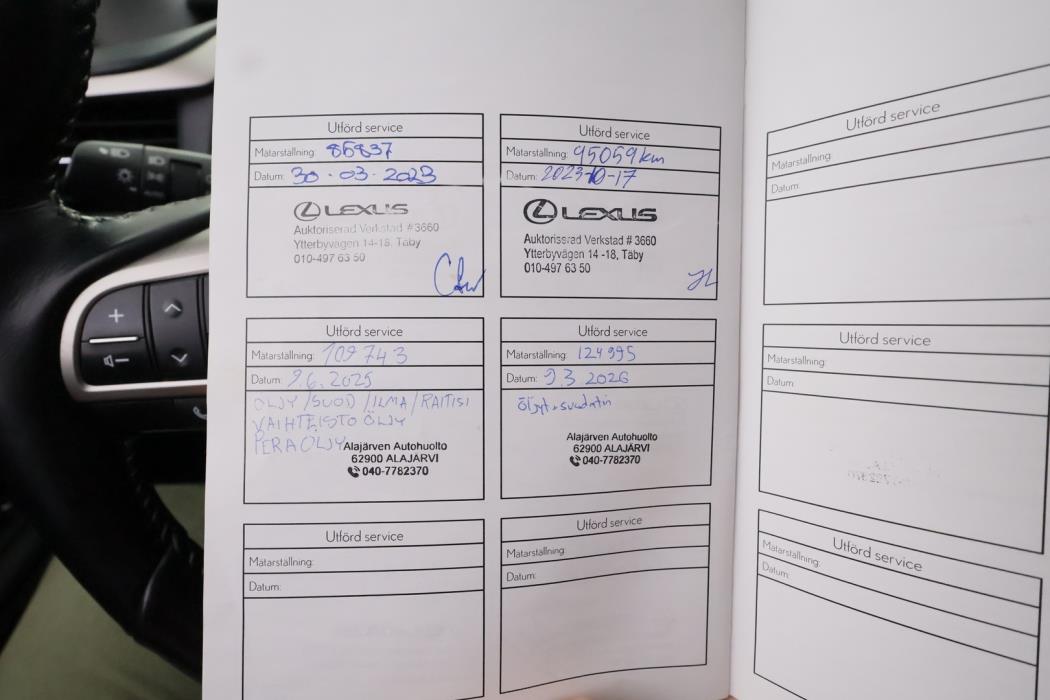 Utförd service
Mätarställning: 86837
Datum: 30.03.2023
LEXUS
Auktoriserad Verkstad # 3660
Ytterbyvägen 14-18, Täby
010-497 63 50
Utförd service
Mätarställning: 95059km
Datum: 2023-10-17
LEXUS
Auktoriserad Verkstad # 3660
Ytterbyvägen 14 -18, Täby
010-497 63 50
Utförd service
Mätarställning: 109743
Datum: 9.6.2025
ÖLJY/SUOD/ILMA/RAITISI
VAIHTEISTO ÖLJY
PERÄÖLJY
Alajärven Autohuolto
62900 ALAJÄRVI
040-7782370
Utförd service
Mätarställning: 124995
Datum: 9.3 2026
Öljyt+suodatin
Alajärven Autohuolto
62900 ALAJÄRVI
040-7782370
Utförd service
Mätarställning:
Datum:
Utförd service
Mätarställning:
Datum:
Utförd service
Mätarställning:
Datum:
Utförd service
Mätarställning:
Datum:
Utförd service
Mätarställning:
Datum: